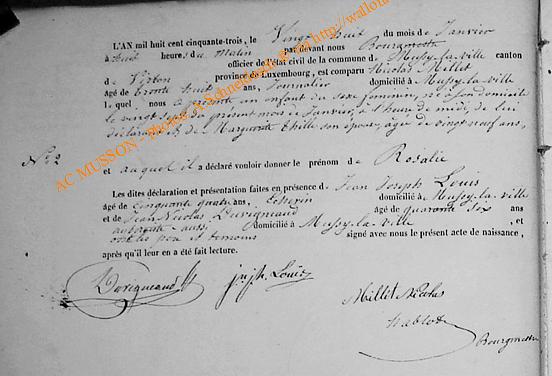 L'AN mil huit cent cinquante-trois, le Vingt huit du mois de Janvier
à huit heure, du matin par devant nous Bourgmestre
officier de l'état civil de la commune de Mussy-la-ville canton
de Virton province de Luxembourg, est comparu Nicolas Millet
âgé de trente huit ans, Journalier domicilié à Mussy-la-ville
lequel nous a présenté un enfant du sexe féminin, né à son domicile
le vingt sept du présent mois de Janvier, à l'heure de midi, de lui
déclarant et de Marguerite son épouse, âgée de vingt neuf ans,
N° 2
et auquel il a déclaré vouloir donner le prénom de Rosalie
Les dites déclaration et présentation faites en présence de Jean Joseph Louis
âgé de cinquante quatre ans, domicilié à Mussy-la-ville
et de Jean Nicolas Duvigneaud âgé de quarante six ans
aubergiste aussi domicilié à Mussy-la-ville, et
ont les père et témoins signé avec nous le présent acte de naissance,
après qu'il leur en a été fait lecture.
Duvigneaud jn jh Louis
Millet Nicolas
Bourgmestre
AC MUSSON - Photos A. Schneider @ http://wallon